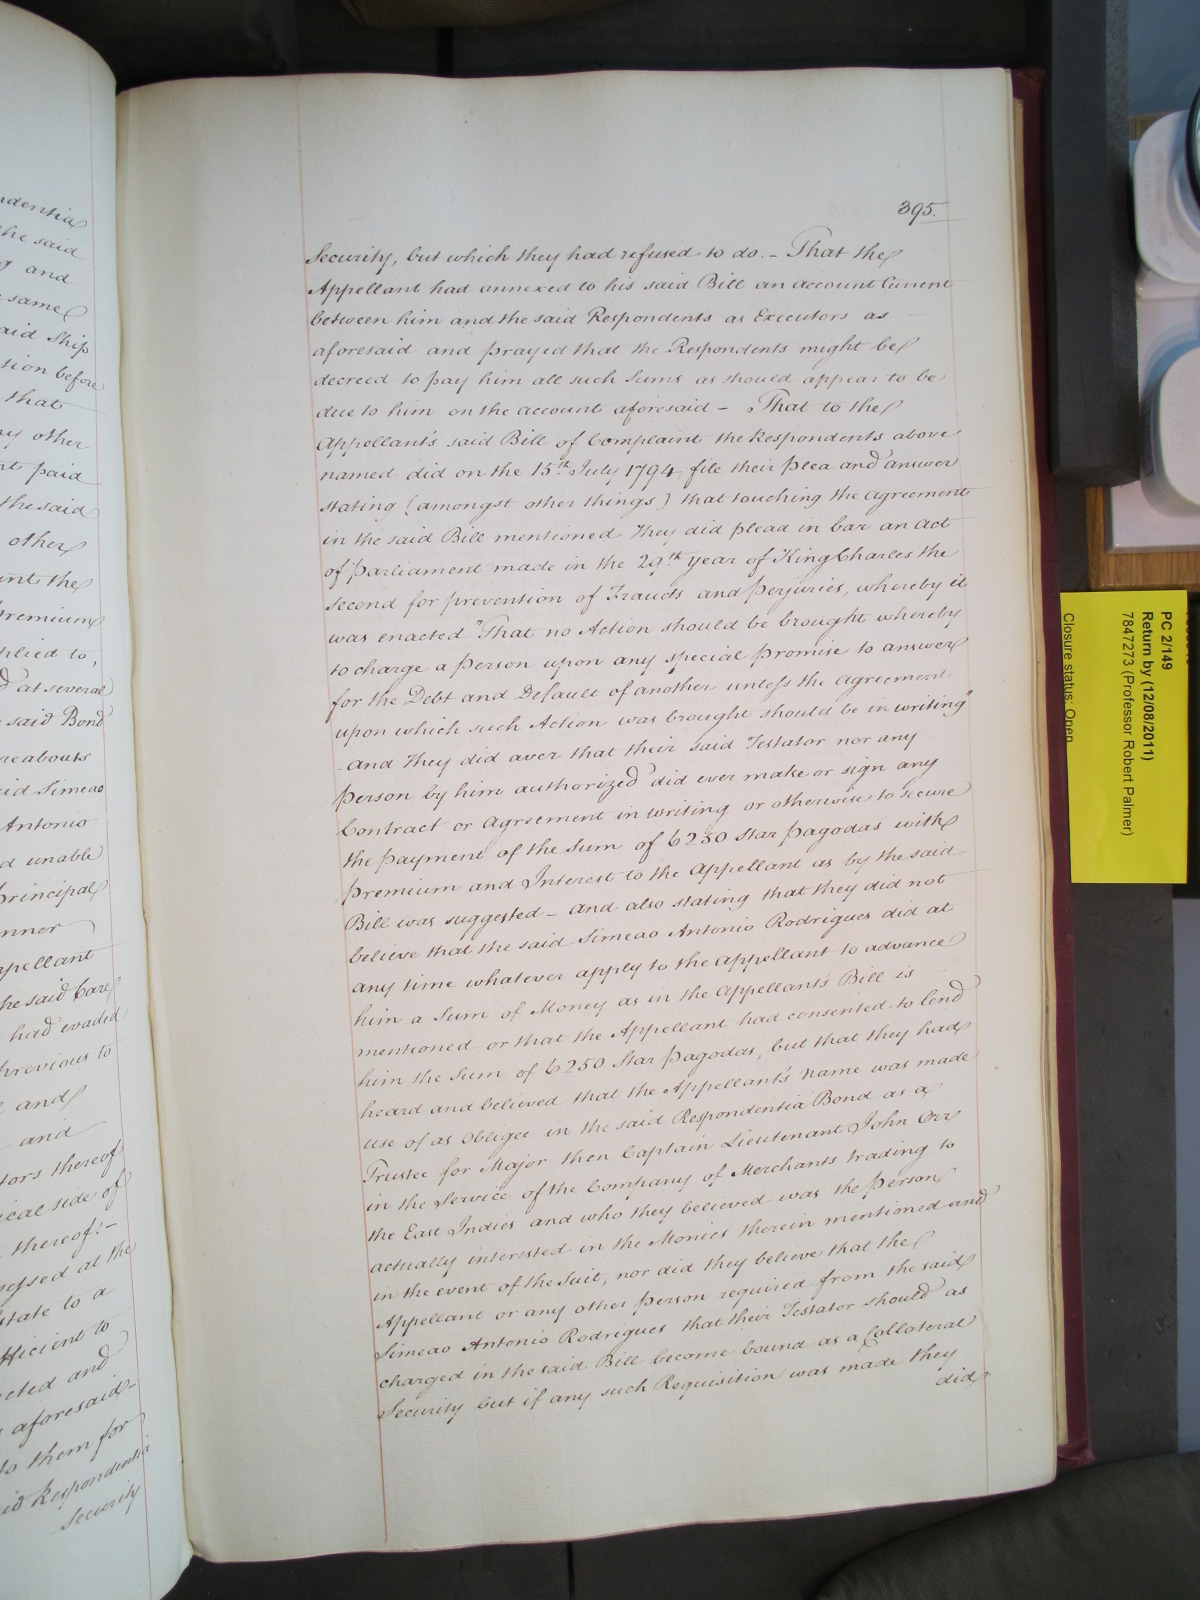 udentia
the said
g and
same
aid Ship
tion before
that
ny other
nt paid
the said
other
int the
Premium
plied to,
d at several
said Bond
hereabouts
id Simeao
Antonio
d unable
Principal
nner
ppellant
he said Care
had evaded
previous to
and
and
tors thereof
ical side of
thereof:-
ssessed at the
state to a
fficient to
cted and
aforesaid-
to them for
id Respondentia
Security
395.
Security, but which they had refused to do. - That the
Appellant had annexed to his said Bill an account Current
between him and the said Respondents as Executors as
aforesaid and prayed that the Respondents might be
decreed to pay him all such Sums as should appear to be
due to him on the account aforesaid - That to the
Appellant's said Bill of Complaint the Respondents above
named did on the 15th July 1794 file their Plea and answer
stating (amongst other things) that touching the agreement
in the said Bill mentioned They did plead in bar an act
of Parliament made in the 29th year of King Charles the
second for prevention of Frauds and Perjuries, whereby it
was enacted "That no Action should be brought whereby
to charge a Person upon any special Promise to answer
for the Debt and Default of another unless the agreement
upon which such Action was brought should be in writing"
- and They did aver that their said Testator nor any
Person by him authorized did ever make or sign any
Contract or Agreement in writing or otherwise to secure
the payment of the Sum of 6250 Star Pagodas with
Premium and Interest to the Appellant as by the said
Bill was suggested - and also stating that they did not
believe that the said Simeao Antonio Rodrigues did at
any time whatever apply to the Appellant to advance
him a Sum of Money as in the Appellant's Bill is
mentioned or that the Appellant had consented to lend
him the Sum of 6250 Star Pagodas, but that they had
heard and believed that the Appellant's name was made
use of as Obligee in the said Respondentia Bond as a
Trustee for Major then Captain Lieutenant John Orr
in the Service of the Company of Merchants trading to
the East Indies and who they believed was the Person
actually interested in the Monies therein mentioned and
in the event of the Suit, nor did they believe that the
Appellant or any other Person required from the said
Simeao Antonio Rodrigues that their Testator should as
charged in the said Bill become bound as a Collateral
Security but if any such Requisition was made they
did
PC 2/149
Return by (12/08/2011)
7847273 (Professor Robert Palmer)
Closure status: Open